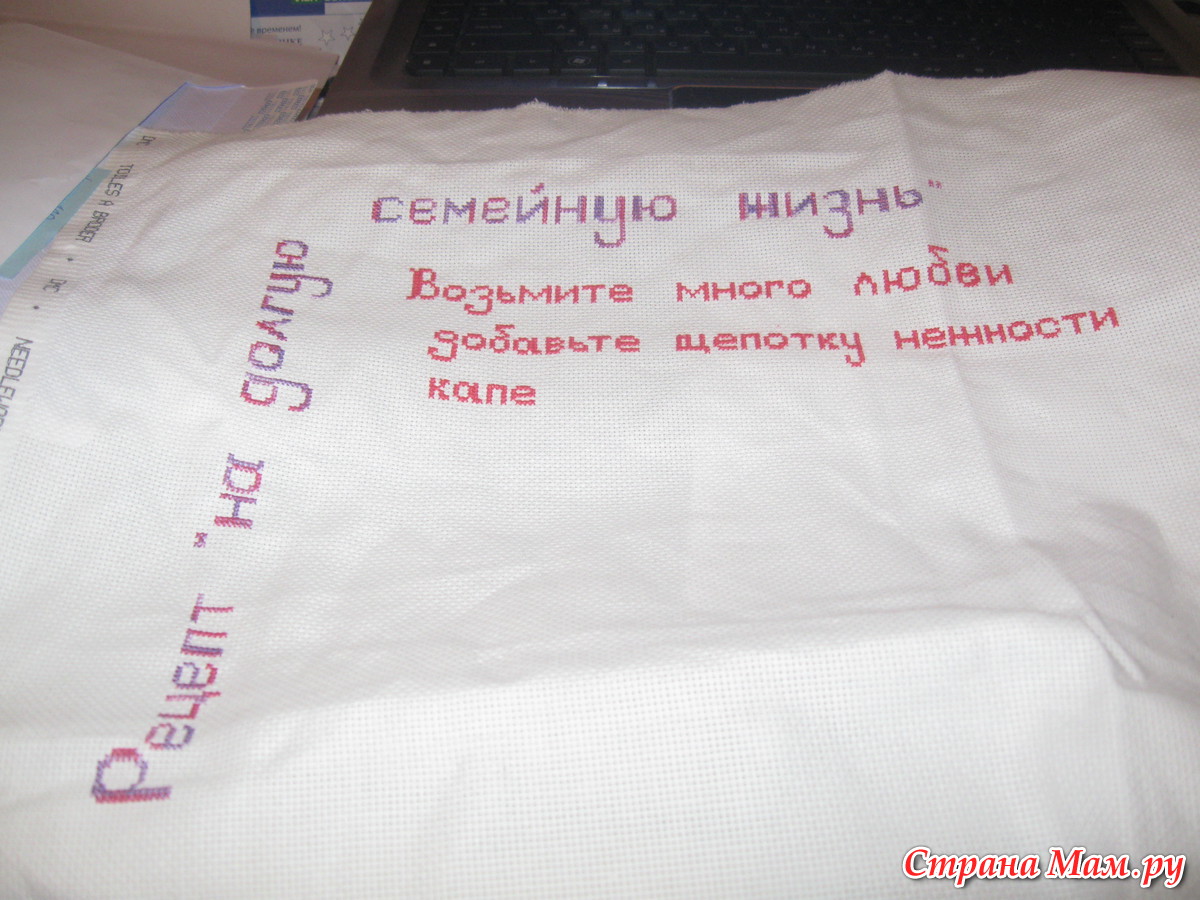 Рецепт "на долгую
семейную жизнь"
Возьмите много любви
добавьте щепотку нежности
капе
DMC TOILES A BRODER • DMC •
времени!
Страна Мам.ру